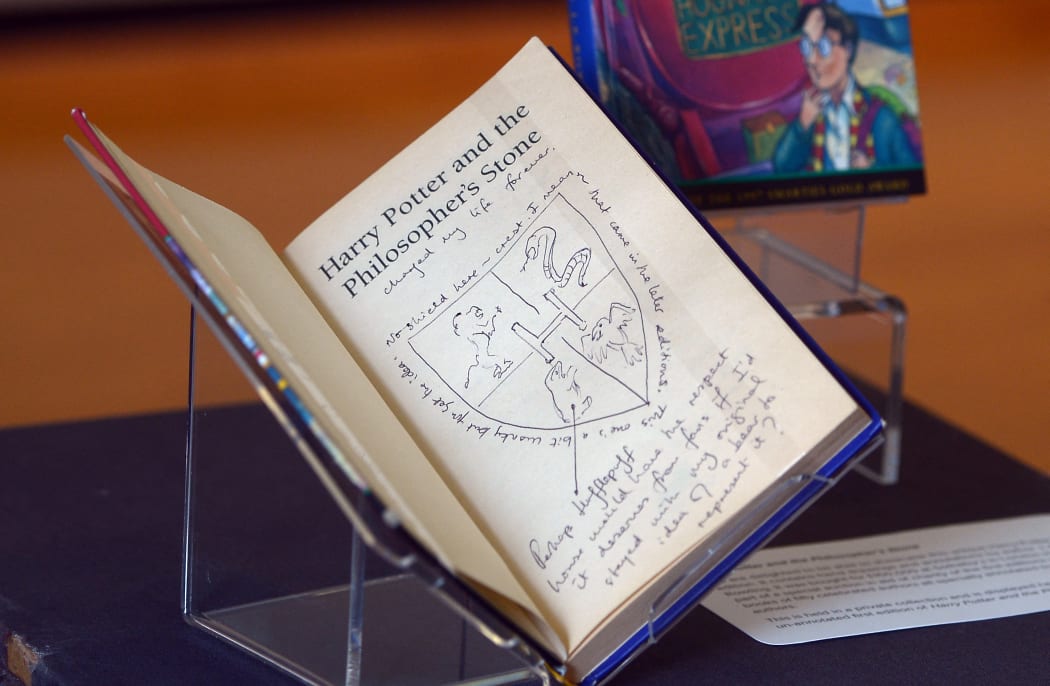 EXPRESS
1997 SMARTIES GOLD AWARD
Harry Potter and the
Philosopher's Stone
changed my life forever.
No shield here ~ crest. I mean ~ that came in the later editions.
one's a bit wonky but you get the idea.
Perhaps Hufflepuff
house would have the respect
it deserves from fans if I'd
stayed with my original
idea of a bear to
represent it?
and the Philosopher's Stone
part of a special
books of fifty celebrated
authors.
This is held in a private collection and is displayed
un-annotated first edition of Harry Potter and the